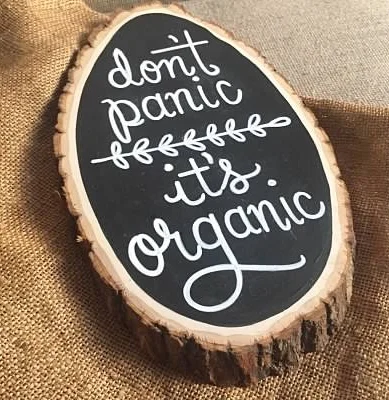 don't
panic
it's
organic